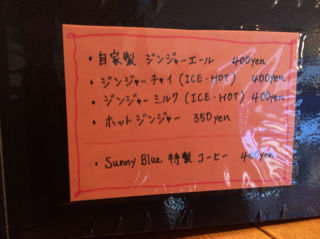 ・自家製 ジンジャーエール 400yen
・ジンジャーチャイ (ICE・HOT) 400yen
・ジンジャーミルク (ICE・HOT) 400yen
・ホットジンジャー 350yen
・Sunny Blue 特製 コーヒー 400yen